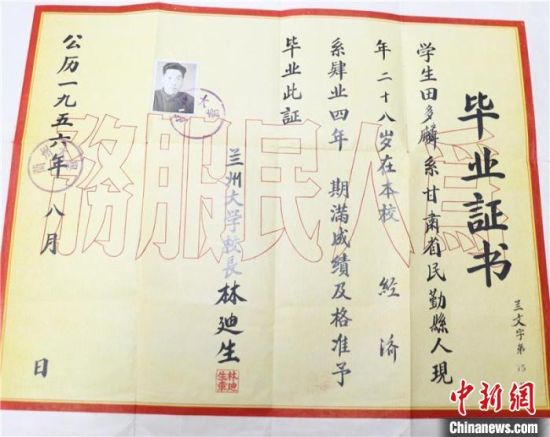 毕业証书
兰文字第15
学生田多麟系甘肃省民勤縣人現
年二十八岁在本校 經濟
系肄业四年 期滿成績及格准予
毕业此証
兰州大学校長 林廸生
林廸生章
公历一九五六年八月 日
為人民服務
中新网
Chinanews.com